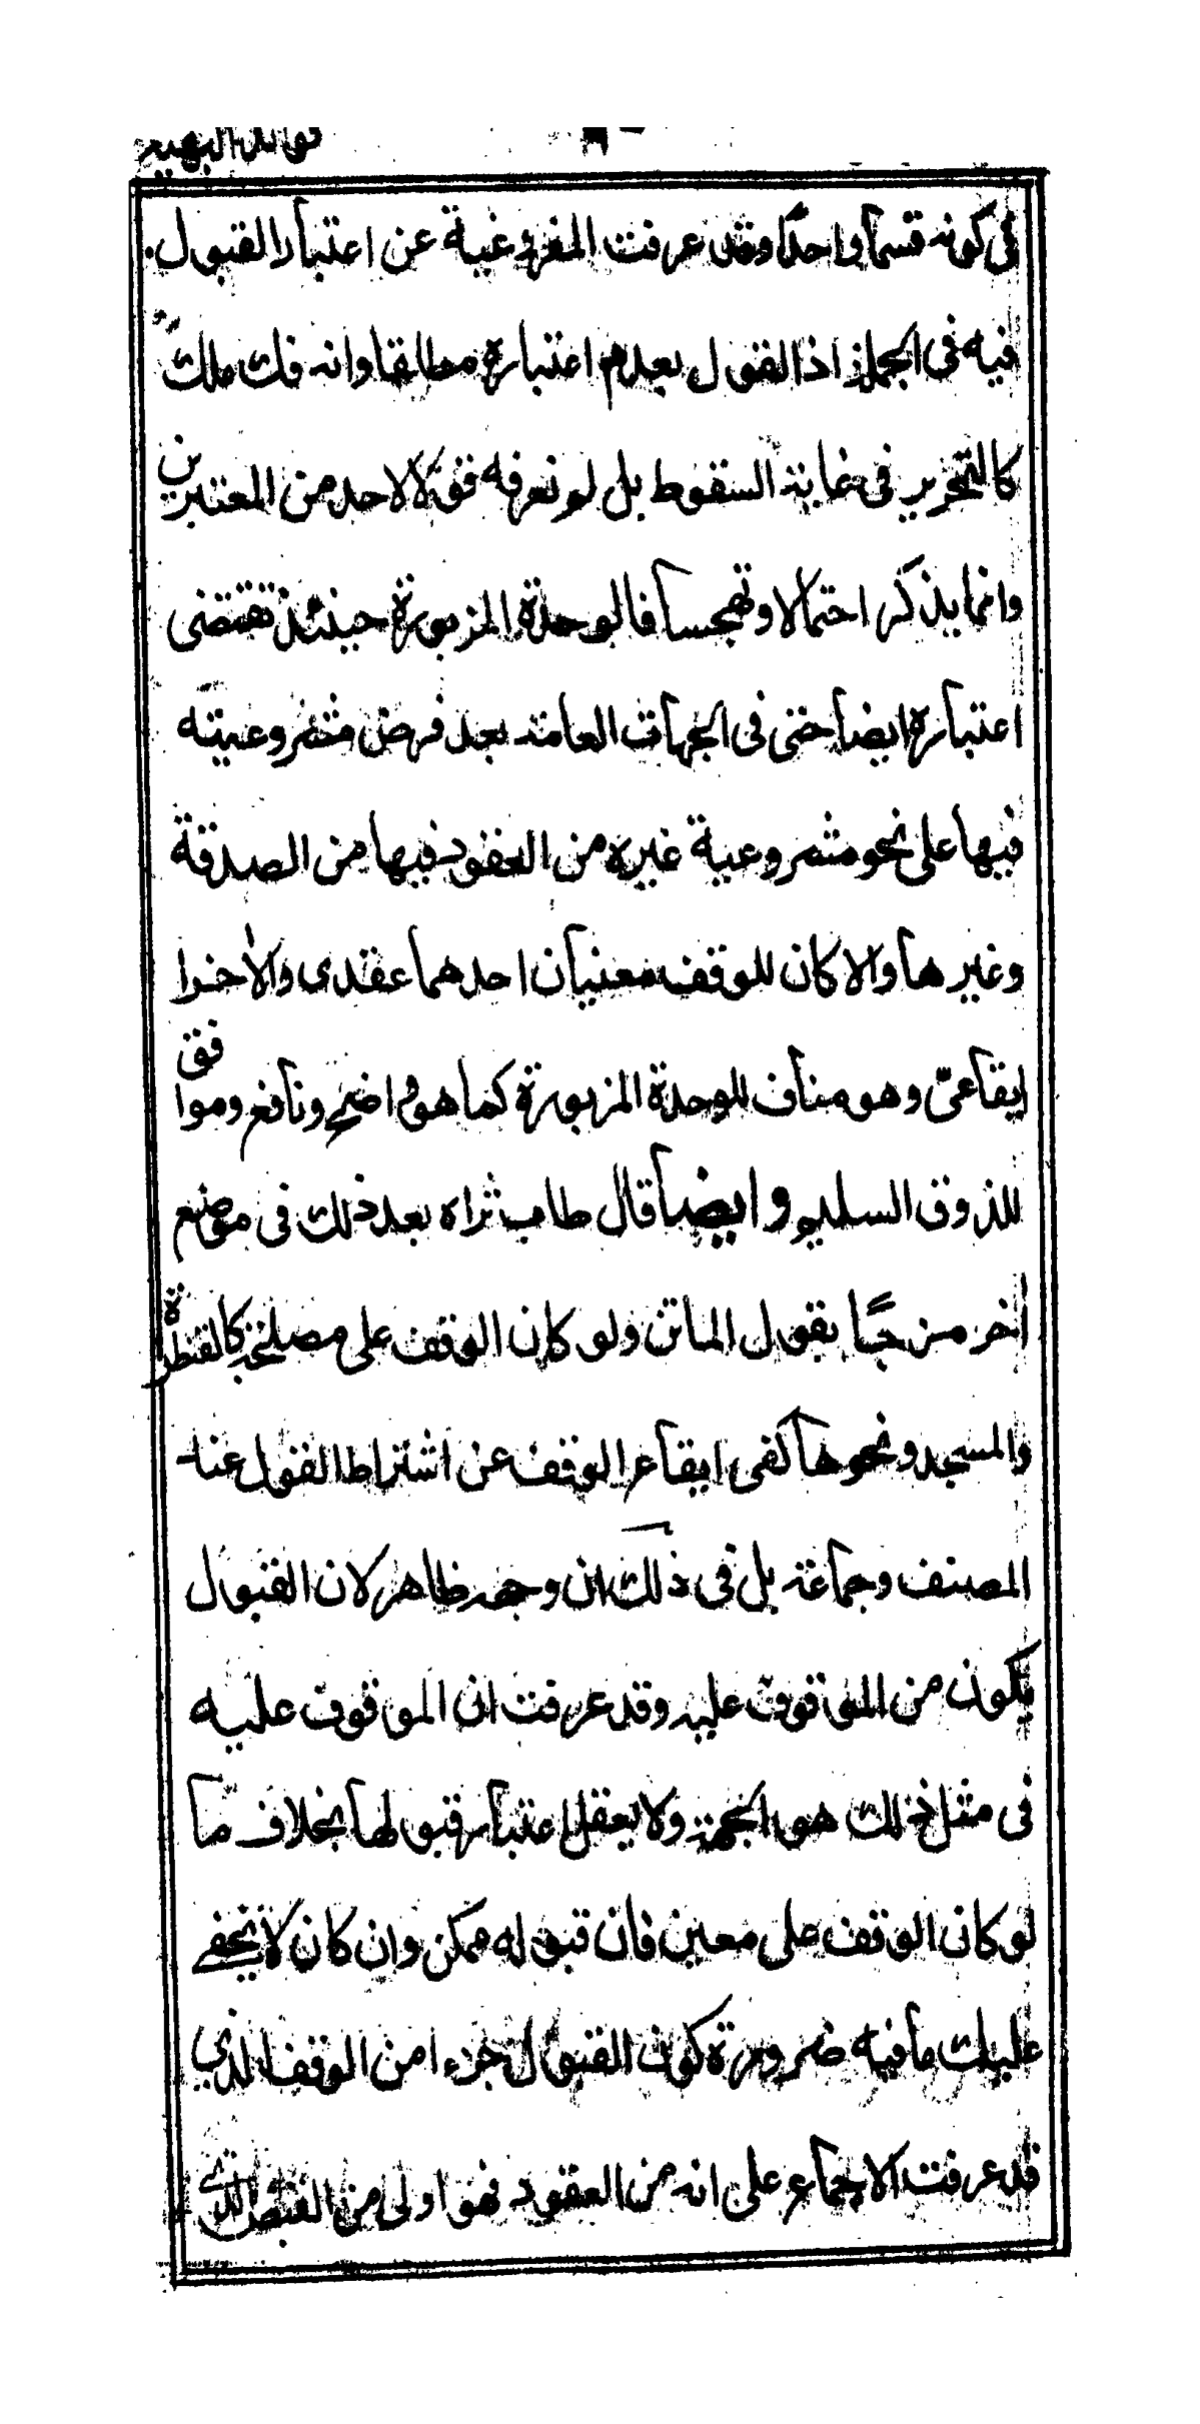 فوائد البهيه
فى كونه قسما واحدًا وقد عرفت المفروغية عن اعتبار القبول
فيه فى الجملة اذ القول بعدم اعتباره مطلقا وانه فك ملك
كالتحرير فى غاية السقوط بل لم نعرفه قولا لاحد من المعتبرين
وانما يذكر احتمالا وتهجسا فالوحدة المزبورة حينئذ تقتضى
اعتباره ايضا حتى فى الجهات العامة بعد فرض مشروعيته
فيها على نحو مشروعية غيره من العقود فيها من الصدقة
وغيرها والا كان للوقف معنيان احدهما عقدى والاخر ا
ايقاعىّ وهو مناف للوحدة المزبورة كما هو واضح ونافع وموافق
للذوق السليم وايضا قال طاب ثراه بعد ذلك فى موضع
اخر مزجًا بقول الماتن ولو كان الوقف على مصلحة كالقنطرة
والمسجد ونحوها كفى ايقاع الوقف عن اشتراط القبول عند
المصنف وجماعة بل فى ذلك ان وجهه ظاهر لان القبول
يكون من الموقوف عليه وقد عرفت ان الموقوف عليه
فى مثل ذلك هو الجهة ولا يعقل اعتبار قبولها بخلاف ما
لو كان الوقف على معين فان قبوله ممكن وان كان لا يخفى
عليك ما فيه ضرورة كون القبول جزء امن الوقف الذي
قد عرفت الاجماع على انه من العقود فهو اولى من القبض الذى